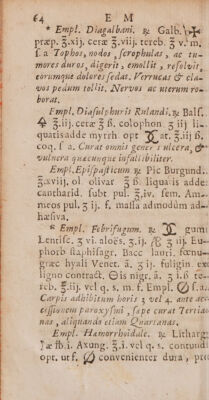 64 E M
* Empl. Diagalbani. ℞ Galb.
præp. ℥.xij. ceræ ℥.viij. tereb. ℥ v. m.
f. a Tophos, nodos, scrophulas, ac tu-
mores duros, digerit, emollit, resolvit,
eorumque dolores sedat. Verrucas & cla-
vos pedum tollit. Nervos ac uterum ro-
borat.
Empl. Diasulphuris Rulandi. ℞ Balf.
🜍 ℥.iij. ceræ ℥ ß. colophon ℥ iij li-
quatis adde myrrh. opt at. ℥.iij ß.
coq. f a. Curat omnis gener s ulcera, &
vulnera quæcunque infallibiliter.
Empl. Epispasticum ℞ Pic Burgund.
℥.xviij, ol olivar ℥ ß liquatis adde
cantharid. subt pul. ℥.iv. sem. Am-
meos pul. ʒ ij. f. massa admodùm ad-
hæsiva.
* Empl. Febrifugum. ℞ gum
Lentisc. ʒ vi. aloës. ʒ.ij. & ʒ iij Eu-
phorb staphisagr. Bacc lauri. fœnu-
græc hyali Venet. ā. ʒ ij. fuligin. ex
ligno contract. nigr. ā. ʒ i.ß te-
reb. ℥.iij. vel q. s. m. f. Empl. f.a.
Carpis adhibitum horis 3 vel 4 ante ac-
cessionem paroxysmi, sæpe curat Tertia-
nas, aliquando etiam Quartanas.
Empl. Hæmorrhoidale. ℞ Litharg
fb i. Axung. ℥.i. vel q. s. contundi
opt. ut f. convenienter dura, pro